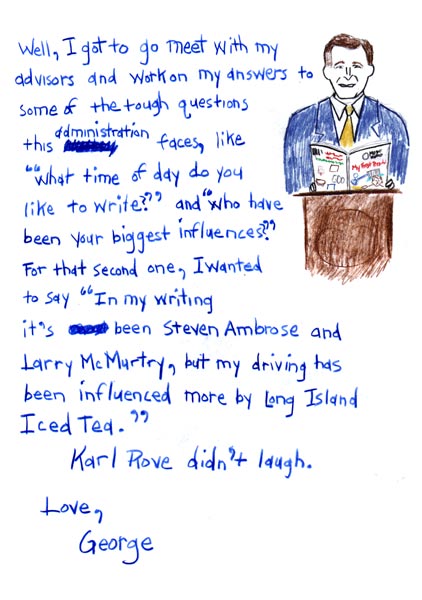 Well, I got to go meet with my
advisors and work on my answers to
some of the tough questions
this administration faces, like
"What time of day do you
like to write?" and "Who have
been your biggest influences?"
For that second one, I wanted
to say "In my writing
it's been Steven Ambrose and
Larry McMurtry, but my driving has
been influenced more by Long Island
Iced Tea."
Karl Rove didn't laugh.
Love,
George
My First Book